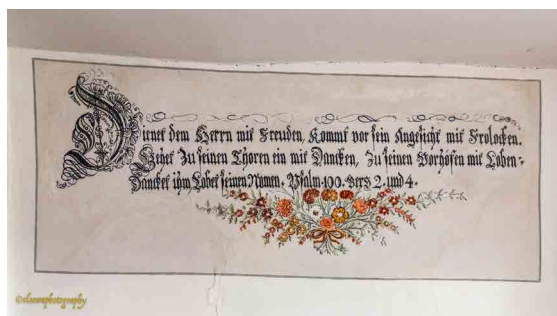 Dienet dem Herrn mit Freuden, Kommt vor sein Angesicht mit Frolocken.
Gehet Zu seinen Thoren ein mit Dancken, Zu seinen Vorhöfen mit Loben-
Dancket ihm Lobet seinen Namen. Psalm. 100. Vers 2. und 4.